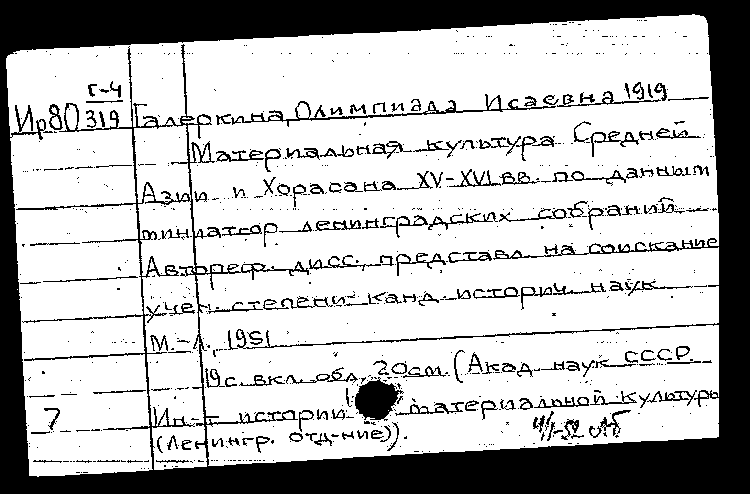 Г-4
Ир80 319 Галеркина, Олимпиада Исаевна 1919
Материальная культура Средней
Азии и Хорасана XV-XVI вв. по данным
миниатюр ленинградских собраний
Автореф. дисс., представл. на соискание
учен. степени канд. историч. наук
М.-Л., 1951
19с. вкл. обл. 20см. (Акад. наук СССР.
7 Ин-т истории материальной культуры
(Ленингр. отд-ние)).